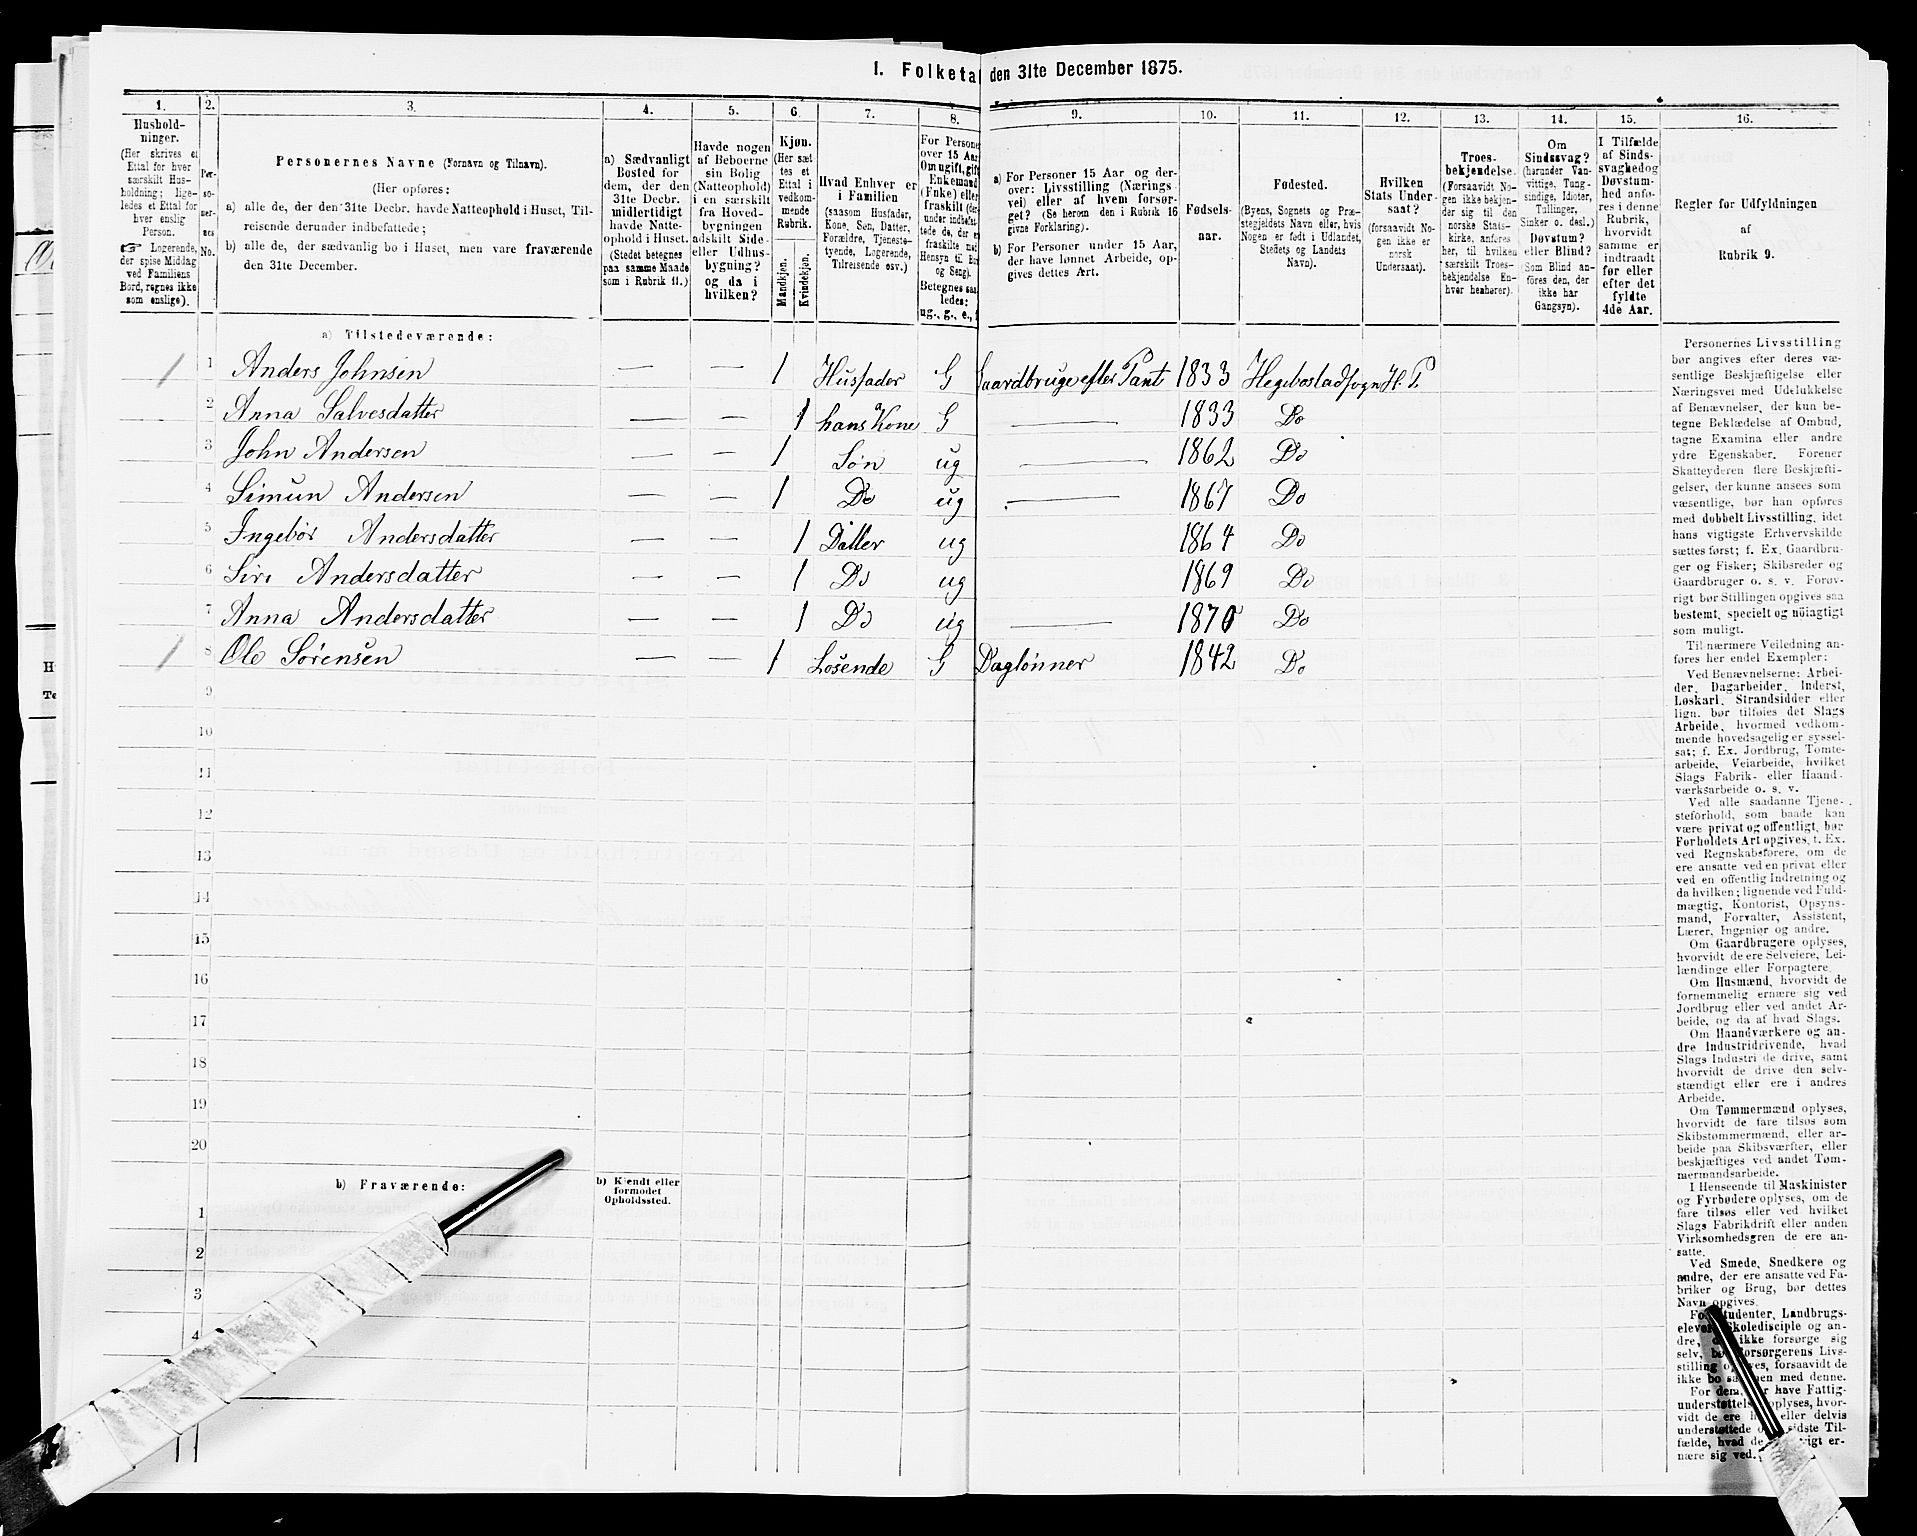 1. Folketa den 31te December 1875.
1. 2. 3. 4. 5. 6. 7. 8. 9. 10. 11. 12. 13. 14. 15. 16.
Hushold-
ninger.
(Her skrives et
Ettal for hver
særskilt Hus-
holdning; lige-
ledes et Ettal for
hver enslig
Person.
☞ Logerende,
der spise Middag
ved Familiens
Bord, regnes ikke
som enslige).
Per-
so-
ner-
nes
No.
Personernes Navne (Fornavn og Tilnavn).
(Her opføres:
a) alle de, der den 31te Decbr. havde Natteophold i Huset, Til-
reisende derunder indbefattede;
b) alle de, der sædvanlig bo i Huset, men vare fraværende
den 31te December.
a) Sædvanligt
Bosted for
dem, der den
31te Decbr.
midlertidigt
havde Natte-
ophold i Huset.
(Stedet betegnes
paa samme Maade
som i Rubrik 11.)
Havde nogen
af Beboerne
sin Bolig
(Natteophold)
i en særskilt
fra Hoved-
bygningen
adskilt Side-
eller Udhus-
bygning?
og da i
hvilken?
Kjøn.
(Her sæt-
tes et
Ettal i
vedkom-
mende
Rubrik.
Mandkjøn.
Kvindekjøn.
Hvad Enhver er
i Familien
(saasom Husfader,
Kone, Søn, Datter,
Forældre, Tjeneste-
tyende, Logerende,
Tilreisende osv.)
For Persone
over 15 Aar
Om ugift, gift
Enkemand
(Enke) eller
fraskilt (der-
under indbefat-
tede de, der e
fraskilte med
Hensyn til Bo
og Seng).
Betegnes saa
ledes:
ug., g., e., f
a) For Personer 15 Aar og der-
over: Livsstilling (Nærings-
vei) eller af hvem forsør-
get? (Se herom den i Rubrik 16
givne Forklaring).
b) For Personer under 15 Aar,
der have lønnet Arbeide, op-
gives dettes Art.
Fødsels-
aar.
Fødested.
(Byens, Sognets og Præ-
stegjeldets Navn eller, hvis
Nogen er født i Udlandet,
Stedets og Landets
Navn).
Hvilken
Stats Under-
saat?
(forsaavidt No-
gen ikke er
norsk
Undersaat).
Troes-
bekjendelse.
(Forsaavidt No-
gen ikke bekjen-
der sig til den
norske Stats-
kirke, anføres
her, til hvilken
særskilt Troes-
bekjendelse En-
hver henhører).
Om
Sindssvag?
(herunder Van-
vittige, Tung-
sindige, Idioter,
Tullinger,
Sinker o. desl.)
Døvstum?
eller Blind?
(Som Blind an-
føres den, der
ikke har
Gangsyn).
I Tilfælde
af Sinds-
svaghed og
Døvstum-
hed anfø-
res i denne
Rubrik,
hvorvidt
samme er
indtraadt
før eller
efter det
fyldte
4de Aar.
Regler for Udfyldningen
af
Rubrik 9.
a) Tilstedeværende:
1 1 Anders Johnsen — — 1 Husfader G Gaardbruge efter Pant 1833 Hegebostad sogn H. P
2 Anna Salvesdatter — — 1 hans Kone G — 1833 Do
3 John Andersen — — 1 Søn ug — 1862 Do
4 Simun Andersen — — 1 Do ug — 1867 Do
5 Ingebør Andersdatter — — 1 Datter ug 1864 Do
6 Siri Andersdatter — — 1 Do ug 1869 Do
7 Anna Andersdatter — — 1 Do ug — 1870 Do
1 8 Ole Sørensen — — 1 Losende G Daglønner 1842 Do
9
10
11
12
13
14
15
16
17
18
19
20
b) Fraværende: b) Kjendt eller
formodet
Opholdssted.
1
2
3
4
Personernes Livsstilling
bør angives efter deres væ-
sentlige Beskjæftigelse eller
Næringsvei med Udelukkelse
af Benævnelser, der kun be-
tegne Beklædelse af Ombud,
tagne Examina eller andre
ydre Egenskaber. Forener
Skatteyderen flere Beskjæfti-
gelser, der kunne ansees som
væsentlige, bør han opføres
med dobbelt Livsstilling, idet
hans vigtigste Erhvervskilde
sættes først; f. Ex. Gaardbru-
ger og Fisker; Skibsreder og
Gaardbruger o. s. v. Forøv-
rigt bør Stillingen opgives saa
bestemt, specielt og nöiagtigt
som muligt.
Til nærmere Veiledning an-
føres her endel Exempler:
Ved Benævnelserne: Arbei-
der, Dagarbeider, Inderst,
Løskarl, Strandsidder eller
lign. bør tilføies det Slags
Arbeide, hvormed vedkom-
mende hovedsagelig er syssel-
sat; f. Ex. Jordbrug, Tomte-
arbeide, Veiarbeide, hvilket
Slags Fabrik- eller Haand-
værksarbeide o. s. v.
Ved alle saadanne Tjene-
steforhold, som baade kan
være privat og offentligt, bør
Forholdets Art opgives, f. Ex.
ved Regnskabsførere, om de
ere ansatte ved en privat eller
ved en offentlig Indretning og
da hvilken; lignende ved Fuld-
mægtig, Kontorist, Opsyns-
mand, Forvalter, Assistent,
Lærer, Ingeniør og andre.
Om Gaardbrugere oplyses,
hvorvidt de ere Selveiere, Lei-
lændinge eller Forpagtere.
Om Husmænd, hvorvidt de
fornemmelig ernære sig ved
Jordbrug eller ved andet Ar-
beide, og da af hvad Slags.
Om Haandværkere og an-
dre Industridrivende, hvad
Slags Industri de drive, samt
hvorvidt de drive den selv-
stændigt eller ere i andres
Arbeide.
Om Tømmermænd oplyses,
hvorvidt de fare tilsøs som
Skibstømmermænd, eller ar-
beide paa Skibsværfter, eller
beskjæftiges ved andet Tøm-
mermandsarbeide.
I Henseende til Maskinister
og Fyrbødere oplyses, om de
fare tilsøs eller ved hvilket
Slags Fabrikdrift eller anden
Virksomhedsgren de ere an-
satte.
Ved Smede, Snedkere og
andre, der ere ansatte ved Fa-
briker og Brug, bør dettes
Navn opgives.
For Studenter, Landbrugs-
elever, Skoledisciple og an-
dre, der ikke forsørge sig
selv, bør Forsørgerens Livs-
stilling opgives, forsaavidt de
ikke bo sammen med denne.
For dem, der have Fattig-
understøttelse, oplyses, hvor-
vidt de ere helt eller delvis
understøttede og i sidste Til-
fælde, hvad de forøvrigt er-
nære sig ved.